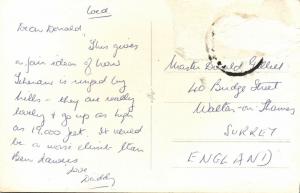 Dear Donald
This gives
a fair idea of how
Teheran is ringed by
hills - they are really
lovely & go up as high
as 19,000 feet. It would
be a worse climb than
Ben Lawers
Love
Daddy
Master Donald
40 Budge Street
Walton-on-Thames
SURREY
ENGLAND